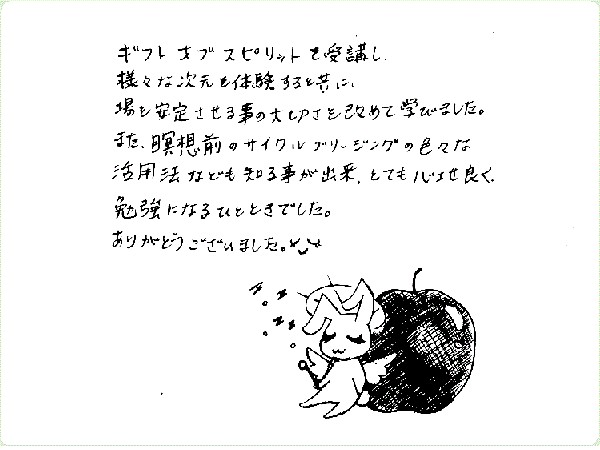 ギフト オブ スピリットを受講し、
様々な次元を体験すると共に、
場を安定させる事の大切さを改めて学びました。
また、瞑想前のサイクルブリージングの色々な
活用法なども知る事が出来、とても心地良く、
勉強になるひとときでした。
ありがとうございました。
zzz
zzz